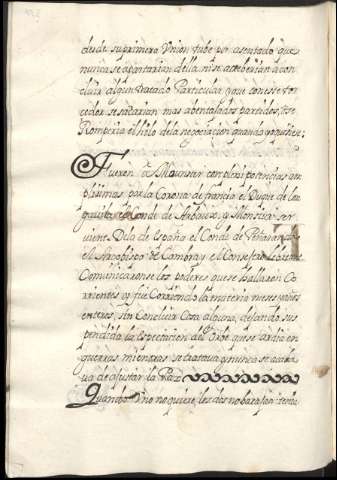 desde su primera Union tubo por asentado que
nunca se apartarian della ni se atreberian a con
cluir algun tratado Particular y que con este for
cedor se sacarian mas abentajados partidos, o se
Romperia el hilo de la negociacion quando gustase;
Fueron a Munster con plenipotencias am
plissimas por la Corona de francia el Duque de Lon
gavila el Conde de Abaux, y Monsieur Ser
viene. De la de España el Conde de Peñaranda
el Arzobispo de Cambray el Consejero
Comunicaronse los poderes que se hallaron Co
rrientes y se fue Corriendo la materia meses y años
enteros, sin Concluir Cosa alguna, dejando sus
pendida la Espectacion del Orbe que se ardia en
guerras mientras se trataua y nunca se acaba
ua de ajustar la Paz
Quando Uno no quiere los dos no barajan tenia